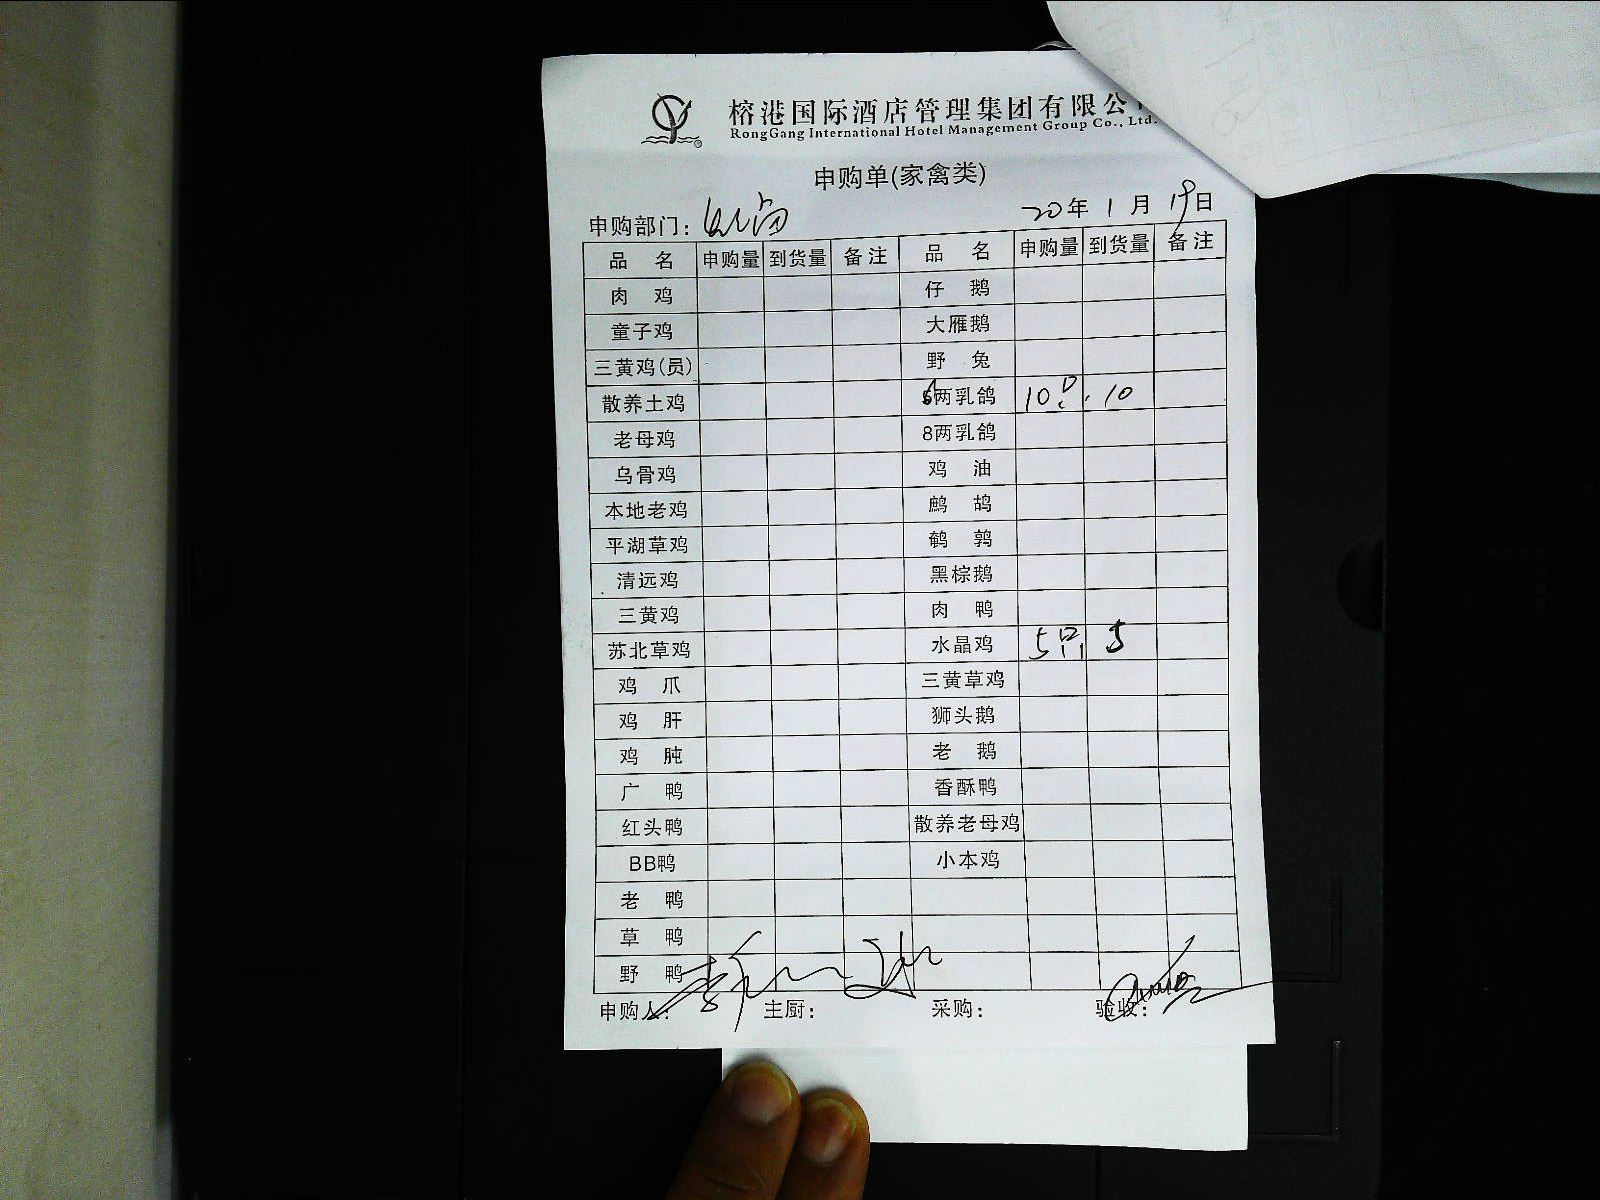 榕港国际酒店管理集团有限公
RongGang International Hotel Management Group Co., Ltd.
申购单(家禽类)
申购部门: 20年 1月 19日
品名 申购量 到货量 备注 品名 申购量 到货量 备注
肉鸡 仔鹅
童子鸡 大雁鹅
三黄鸡(员) 野兔
散养土鸡 两乳鸽 10只 10
老母鸡 8两乳鸽
乌骨鸡 鸡油
本地老鸡 鹧鸪
平湖草鸡 鹌鹑
清远鸡 黑棕鹅
三黄鸡 肉鸭
苏北草鸡 水晶鸡 5只 5
鸡爪 三黄草鸡
鸡肝 狮头鹅
鸡肫 老鹅
广鸭 香酥鸭
红头鸭 散养老母鸡
BB鸭 小本鸡
老鸭
草鸭
野鸭
申购人: 主厨: 采购: 验收: